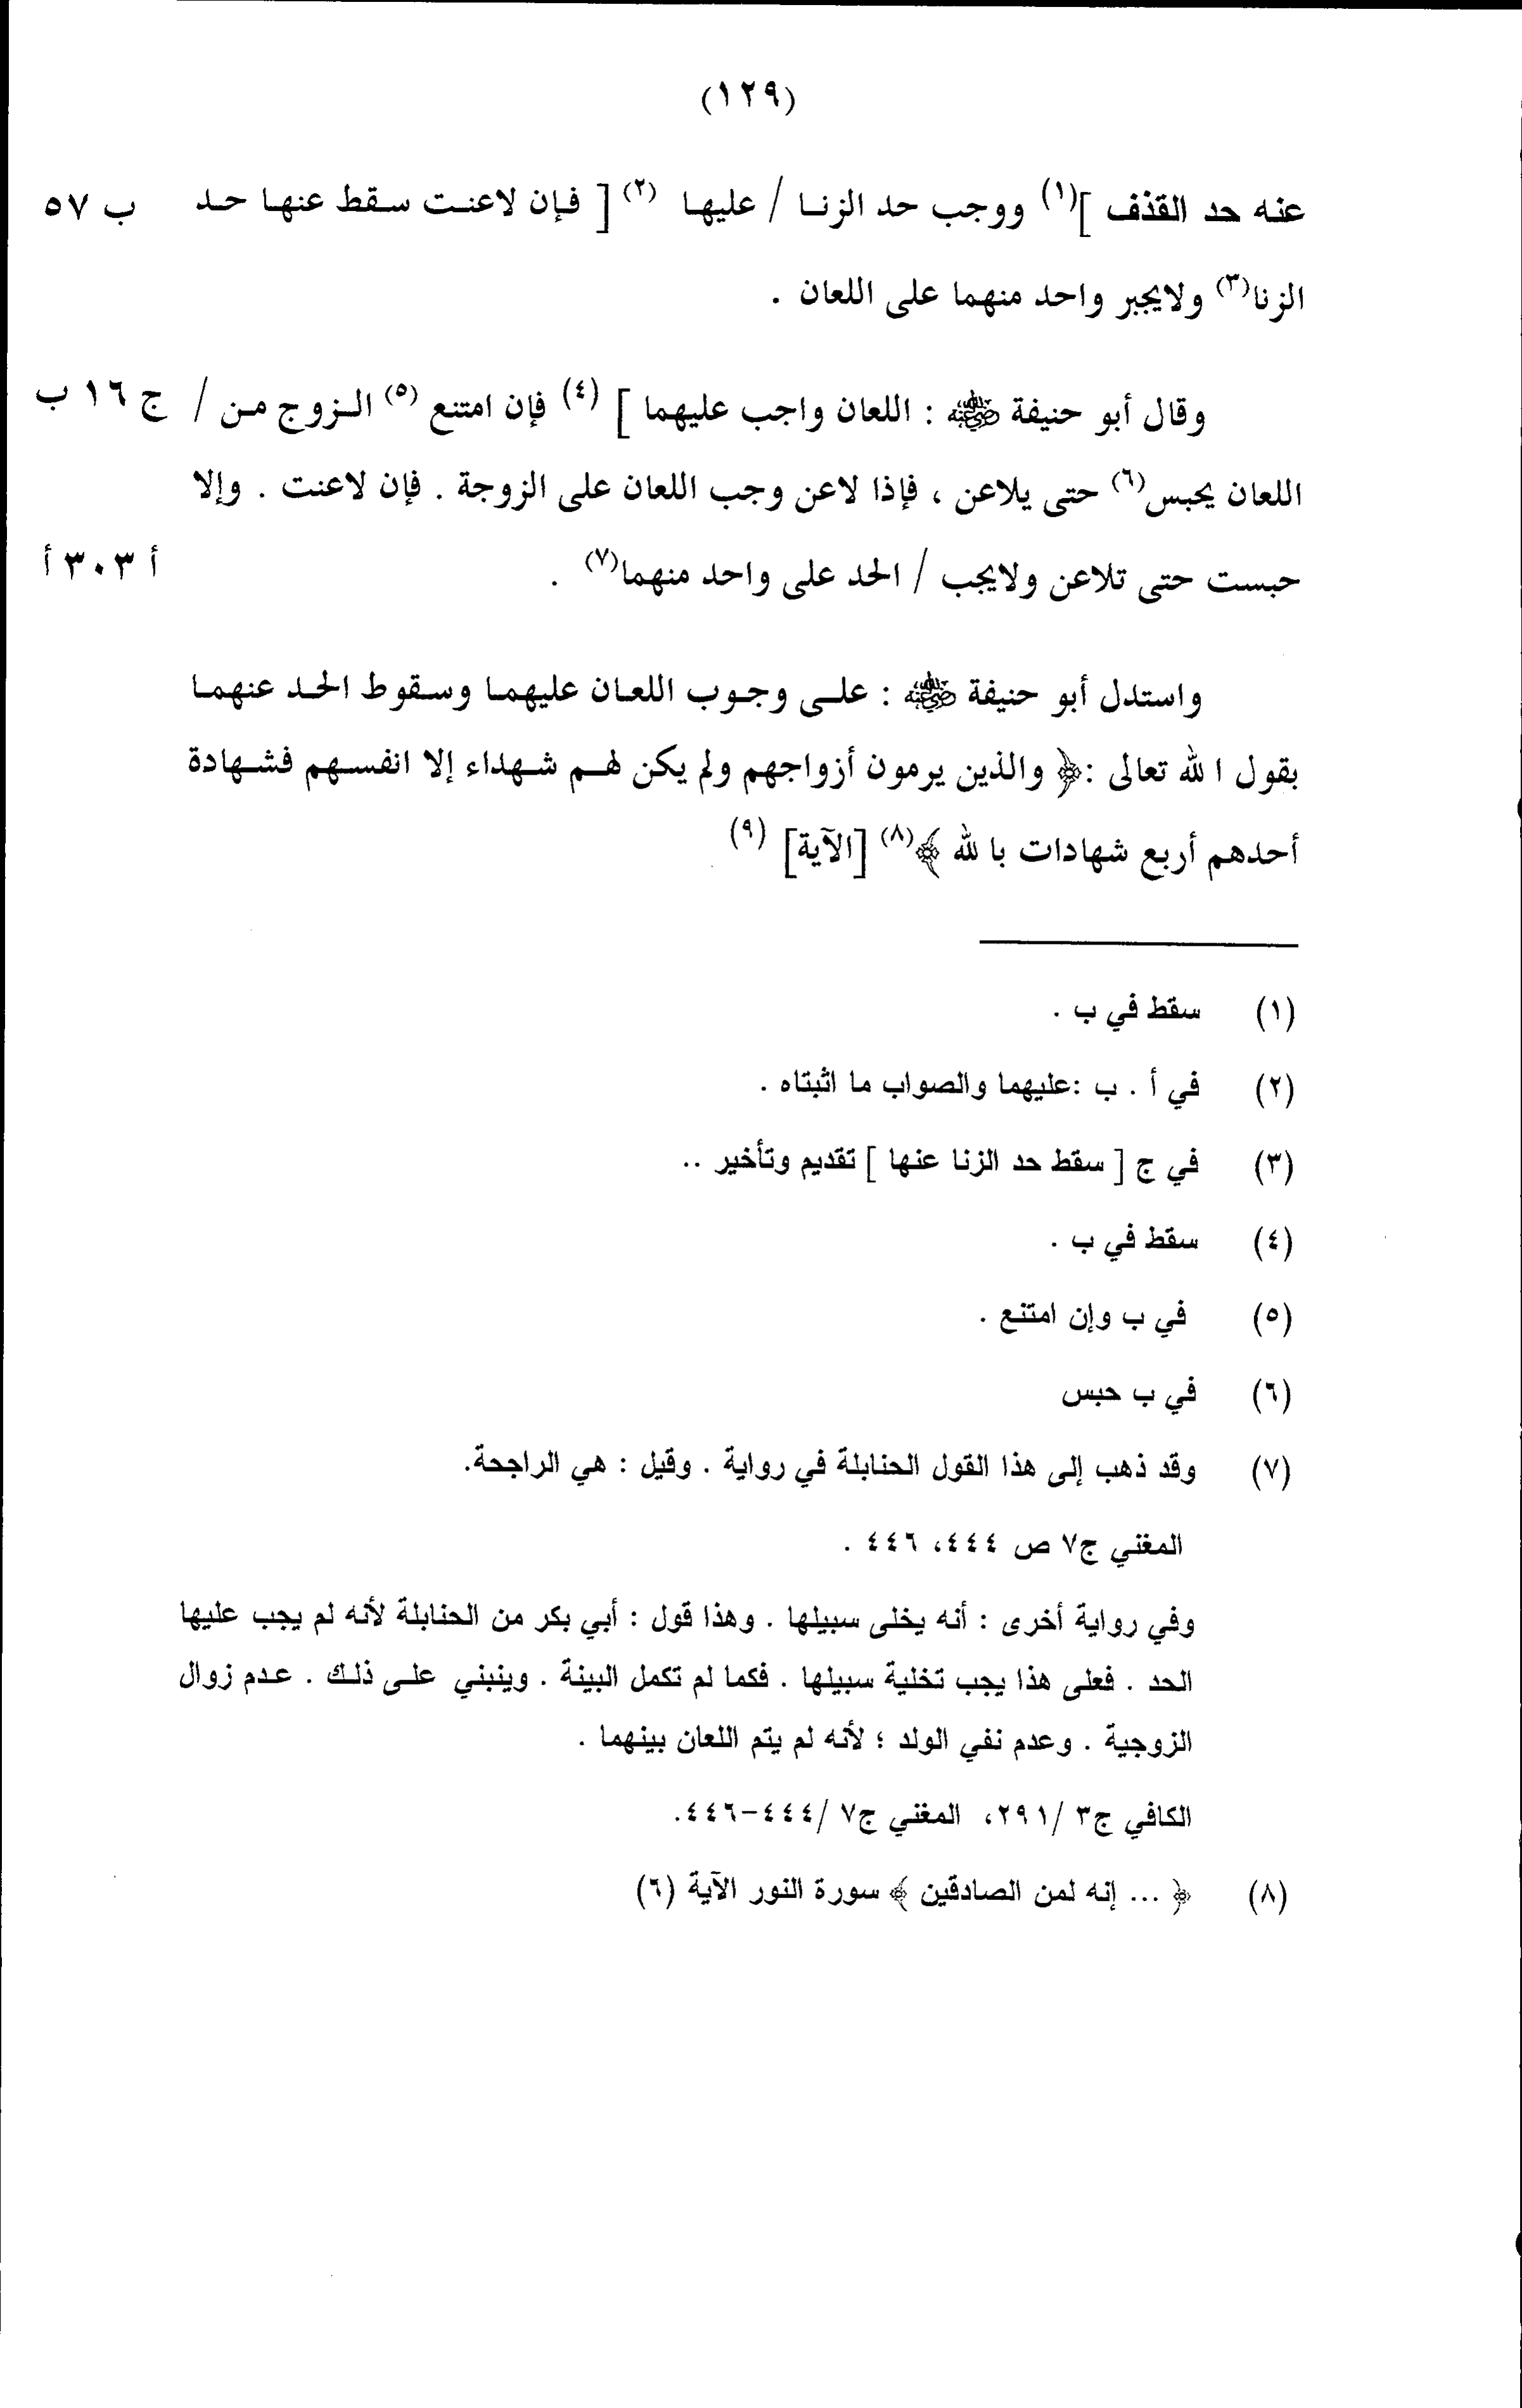 (١٢٩)
عنه حد القذف ](١) ووجب حد الزنـا / عليهـا (٢) [ فـإن لاعنـت سـقط عنهـا حـد ب ٥٧
الزنا(٣) ولايجبر واحد منهما على اللعان .
وقال أبو حنيفة ﷺ : اللعان واجب عليهما ] (٤) فإن امتنع (٥) الـزوج مـن / ج ١٦ ب
اللعان يحبس(٦) حتى يلاعن ، فإذا لاعن وجب اللعان على الزوجة . فإن لاعنت . وإلا
حبست حتى تلاعن ولايجب / الحد على واحد منهما(٧) . أ ٣٠٣ أ
واستدل أبو حنيفة ﷺ : علـى وجـوب اللعـان عليهمـا وسـقوط الحـد عنهمـا
بقول ا لله تعالى :﴿ والذين يرمون أزواجهم ولم يكن لهـم شـهداء إلا انفسـهم فشـهادة
أحدهم أربع شهادات با لله ﴾(٨) [الآية] (٩)
(١) سقط في ب .
(٢) في أ . ب :عليهما والصواب ما اثبتاه .
(٣) في ج [ سقط حد الزنا عنها ] تقديم وتأخير ..
(٤) سقط في ب .
(٥) في ب وإن امتنع .
(٦) في ب حبس
(٧) وقد ذهب إلى هذا القول الحنابلة في رواية . وقيل : هي الراجحة.
المغني ج٧ ص ٤٤٤، ٤٤٦ .
وفي رواية أخرى : أنه يخلى سبيلها . وهذا قول : أبي بكر من الحنابلة لأنه لم يجب عليها
الحد . فعلى هذا يجب تخلية سبيلها . فكما لم تكمل البينة . وينبني علـى ذلـك . عـدم زوال
الزوجية . وعدم نفي الولد ؛ لأنه لم يتم اللعان بينهما .
الكافي ج٣ /٢٩١، المغني ج٧ /٤٤٤-٤٤٦.
(٨) ﴿ ... إنه لمن الصادقين ﴾ سورة النور الآية (٦)